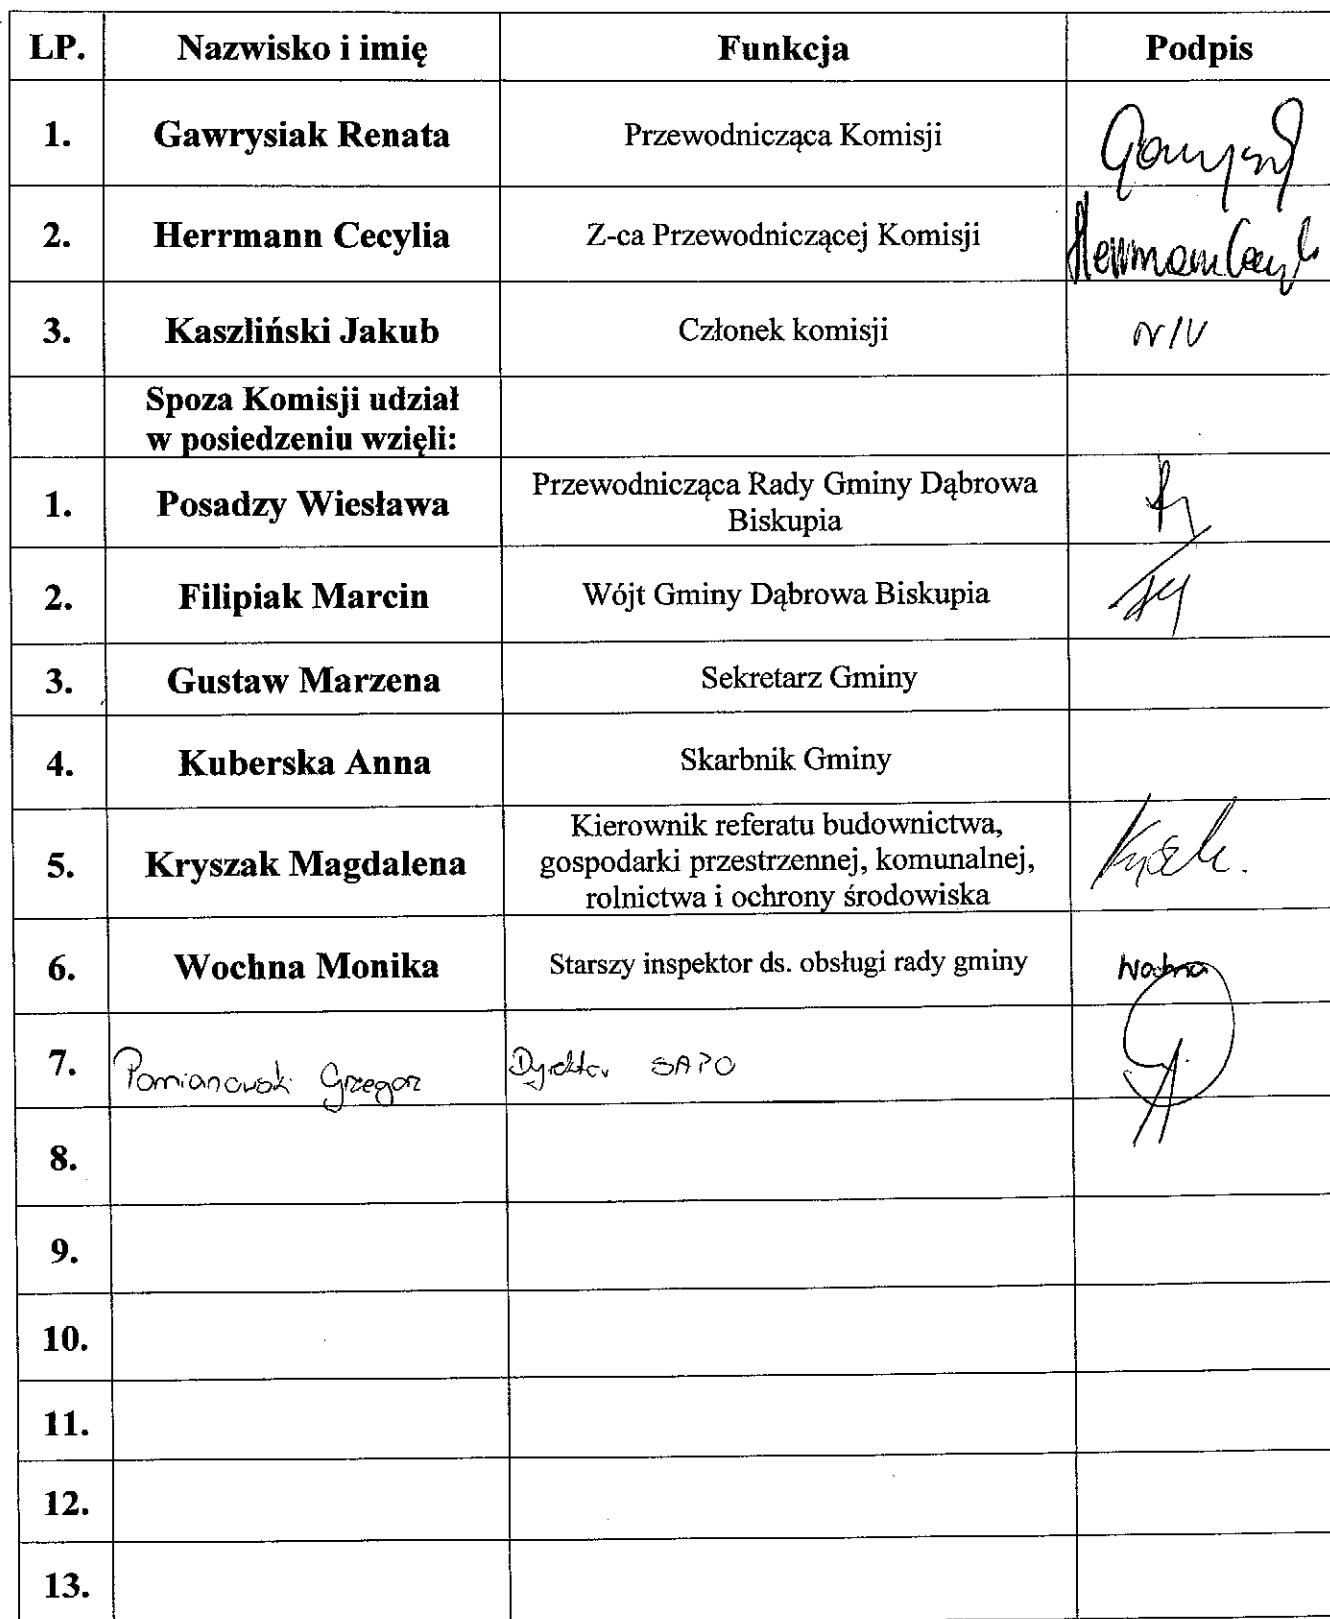 LP. Nazwisko i imię Funkcja Podpis
1. Gawrysiak Renata Przewodnicząca Komisji
2. Herrmann Cecylia Z-ca Przewodniczącej Komisji
3. Kaszliński Jakub Członek komisji
Spoza Komisji udział
w posiedzeniu wzięli:
1. Posadzy Wiesława Przewodnicząca Rady Gminy Dąbrowa
Biskupia
2. Filipiak Marcin Wójt Gminy Dąbrowa Biskupia
3. Gustaw Marzena Sekretarz Gminy
4. Kuberska Anna Skarbnik Gminy
Kierownik referatu budownictwa,
5. Kryszak Magdalena gospodarki przestrzennej, komunalnej,
rolnictwa i ochrony środowiska
6. Wochna Monika Starszy inspektor ds. obsługi rady gminy Wochna
7. Pomianowski Grzegorz Dyrektor SAPO
8.
9.
10.
11.
12.
13.